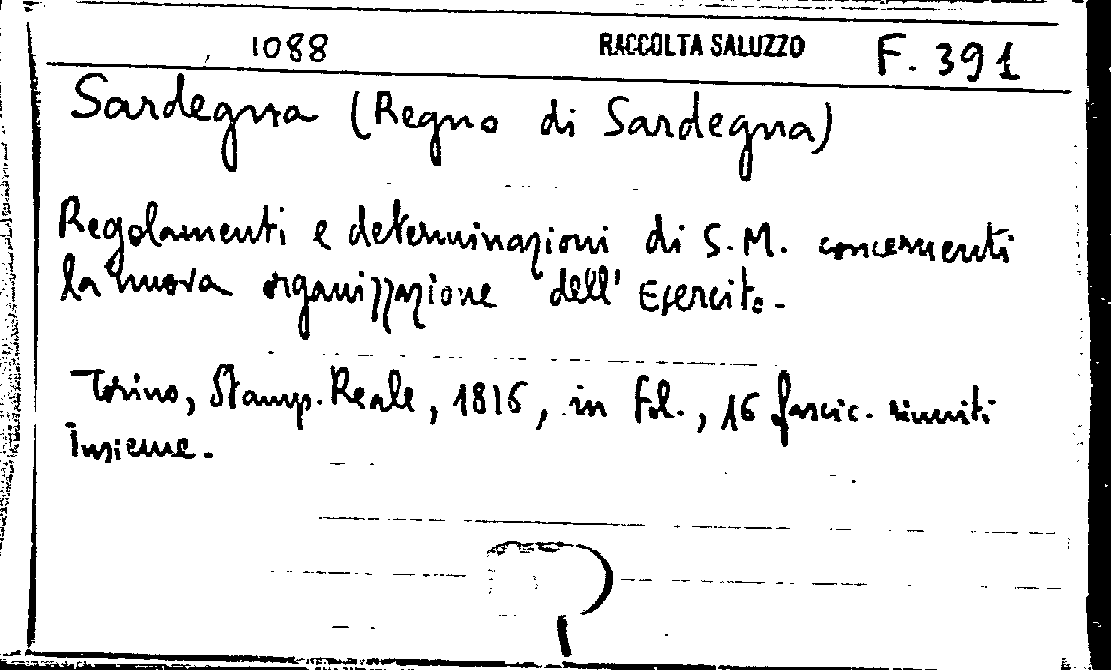 1088 RACCOLTA SALUZZO F. 391
Sardegna (Regno di Sardegna)
Regolamenti e determinazioni di S.M. concernenti
la nuova organizzazione dell' Esercito.-
Torino, Stamp. Reale, 1816, in fol., 16 fascic. riuniti
insieme.-